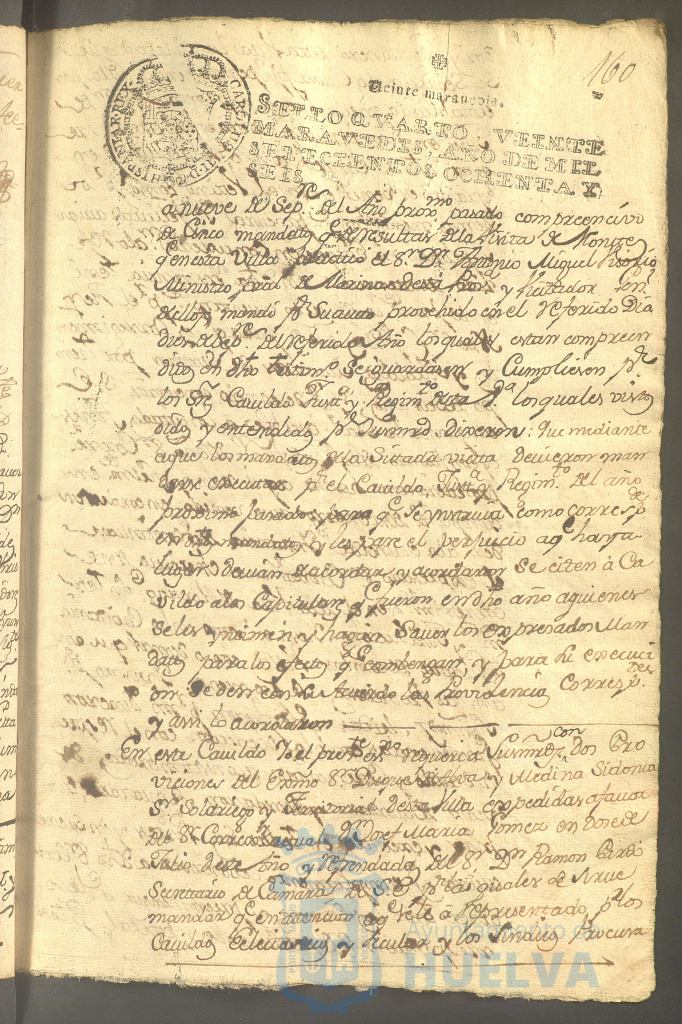 160
Veinte maravedis.
SELLO QVARTO, VEINTE
MARAVEDIS, AÑO DE MIL
SETECIENTOS OCHENTA Y
SEIS.
CAROLUS III D. G. HISPANIAR. REX
a nueve de Sepre. del Año proxmo. pasado comprecencivo
de Cinco mandatos qe. de resultas de la Visita de Montes
qe. en esta Villa practicó el Sr. Dn. Antonio Miguel
Ministro pral. de Marina de esta Prova. y Visitador
de ellos mandó pr. su auto provehido en el referido Dia
nueve de Sepe. del referido Año los quales estan compreen
didos en dho testimo. se guardasen y Cumpliesen pr.
los SS. Cavildo Justa. y Regimto. de esta Va. los quales vistos
oidos y entendidos pr. sus mrds dixeron: Que mediante
a que los mandatos de la Sittada visita devieron man
darse executar pr. el Cavildo Justa. y Regimto. del año
proximo pasado para qe. se
mandatos y les pare el perjuicio a qe. haya
lugar, devian de acordar y acordaron se citen à Ca
vildo a los Capitulares qe. fueron en dho año a quienes
se les y hagan Saver los expresados Man
datos para los efectos qe. combengan y para su execuci
on se den en este Acuerdo las Providencias Corresp.tes
y assi lo acordaron
En este Cavildo Yo el preste. essno. requerí a sus mrds. con dos Pro
viciones del Exmo Sr. Duque de Alva y Medina Sidonia
Sr. Solariego y Territorial de esta Villa expedidas a favor
del Sr. Correxor. actual Dn. Josef Maria Gomez en doze de
Julio de este Año y refrendada del Sr. Dn. Ramon
Secretario de Camara de S.E. pr. las quales se sirve
mandar qe. en atencion a qe. se le à representado pr. los
Cavildos Eclesiastico y Secular y los Sindicos Procura
Ayuntamiento de
HUELVA